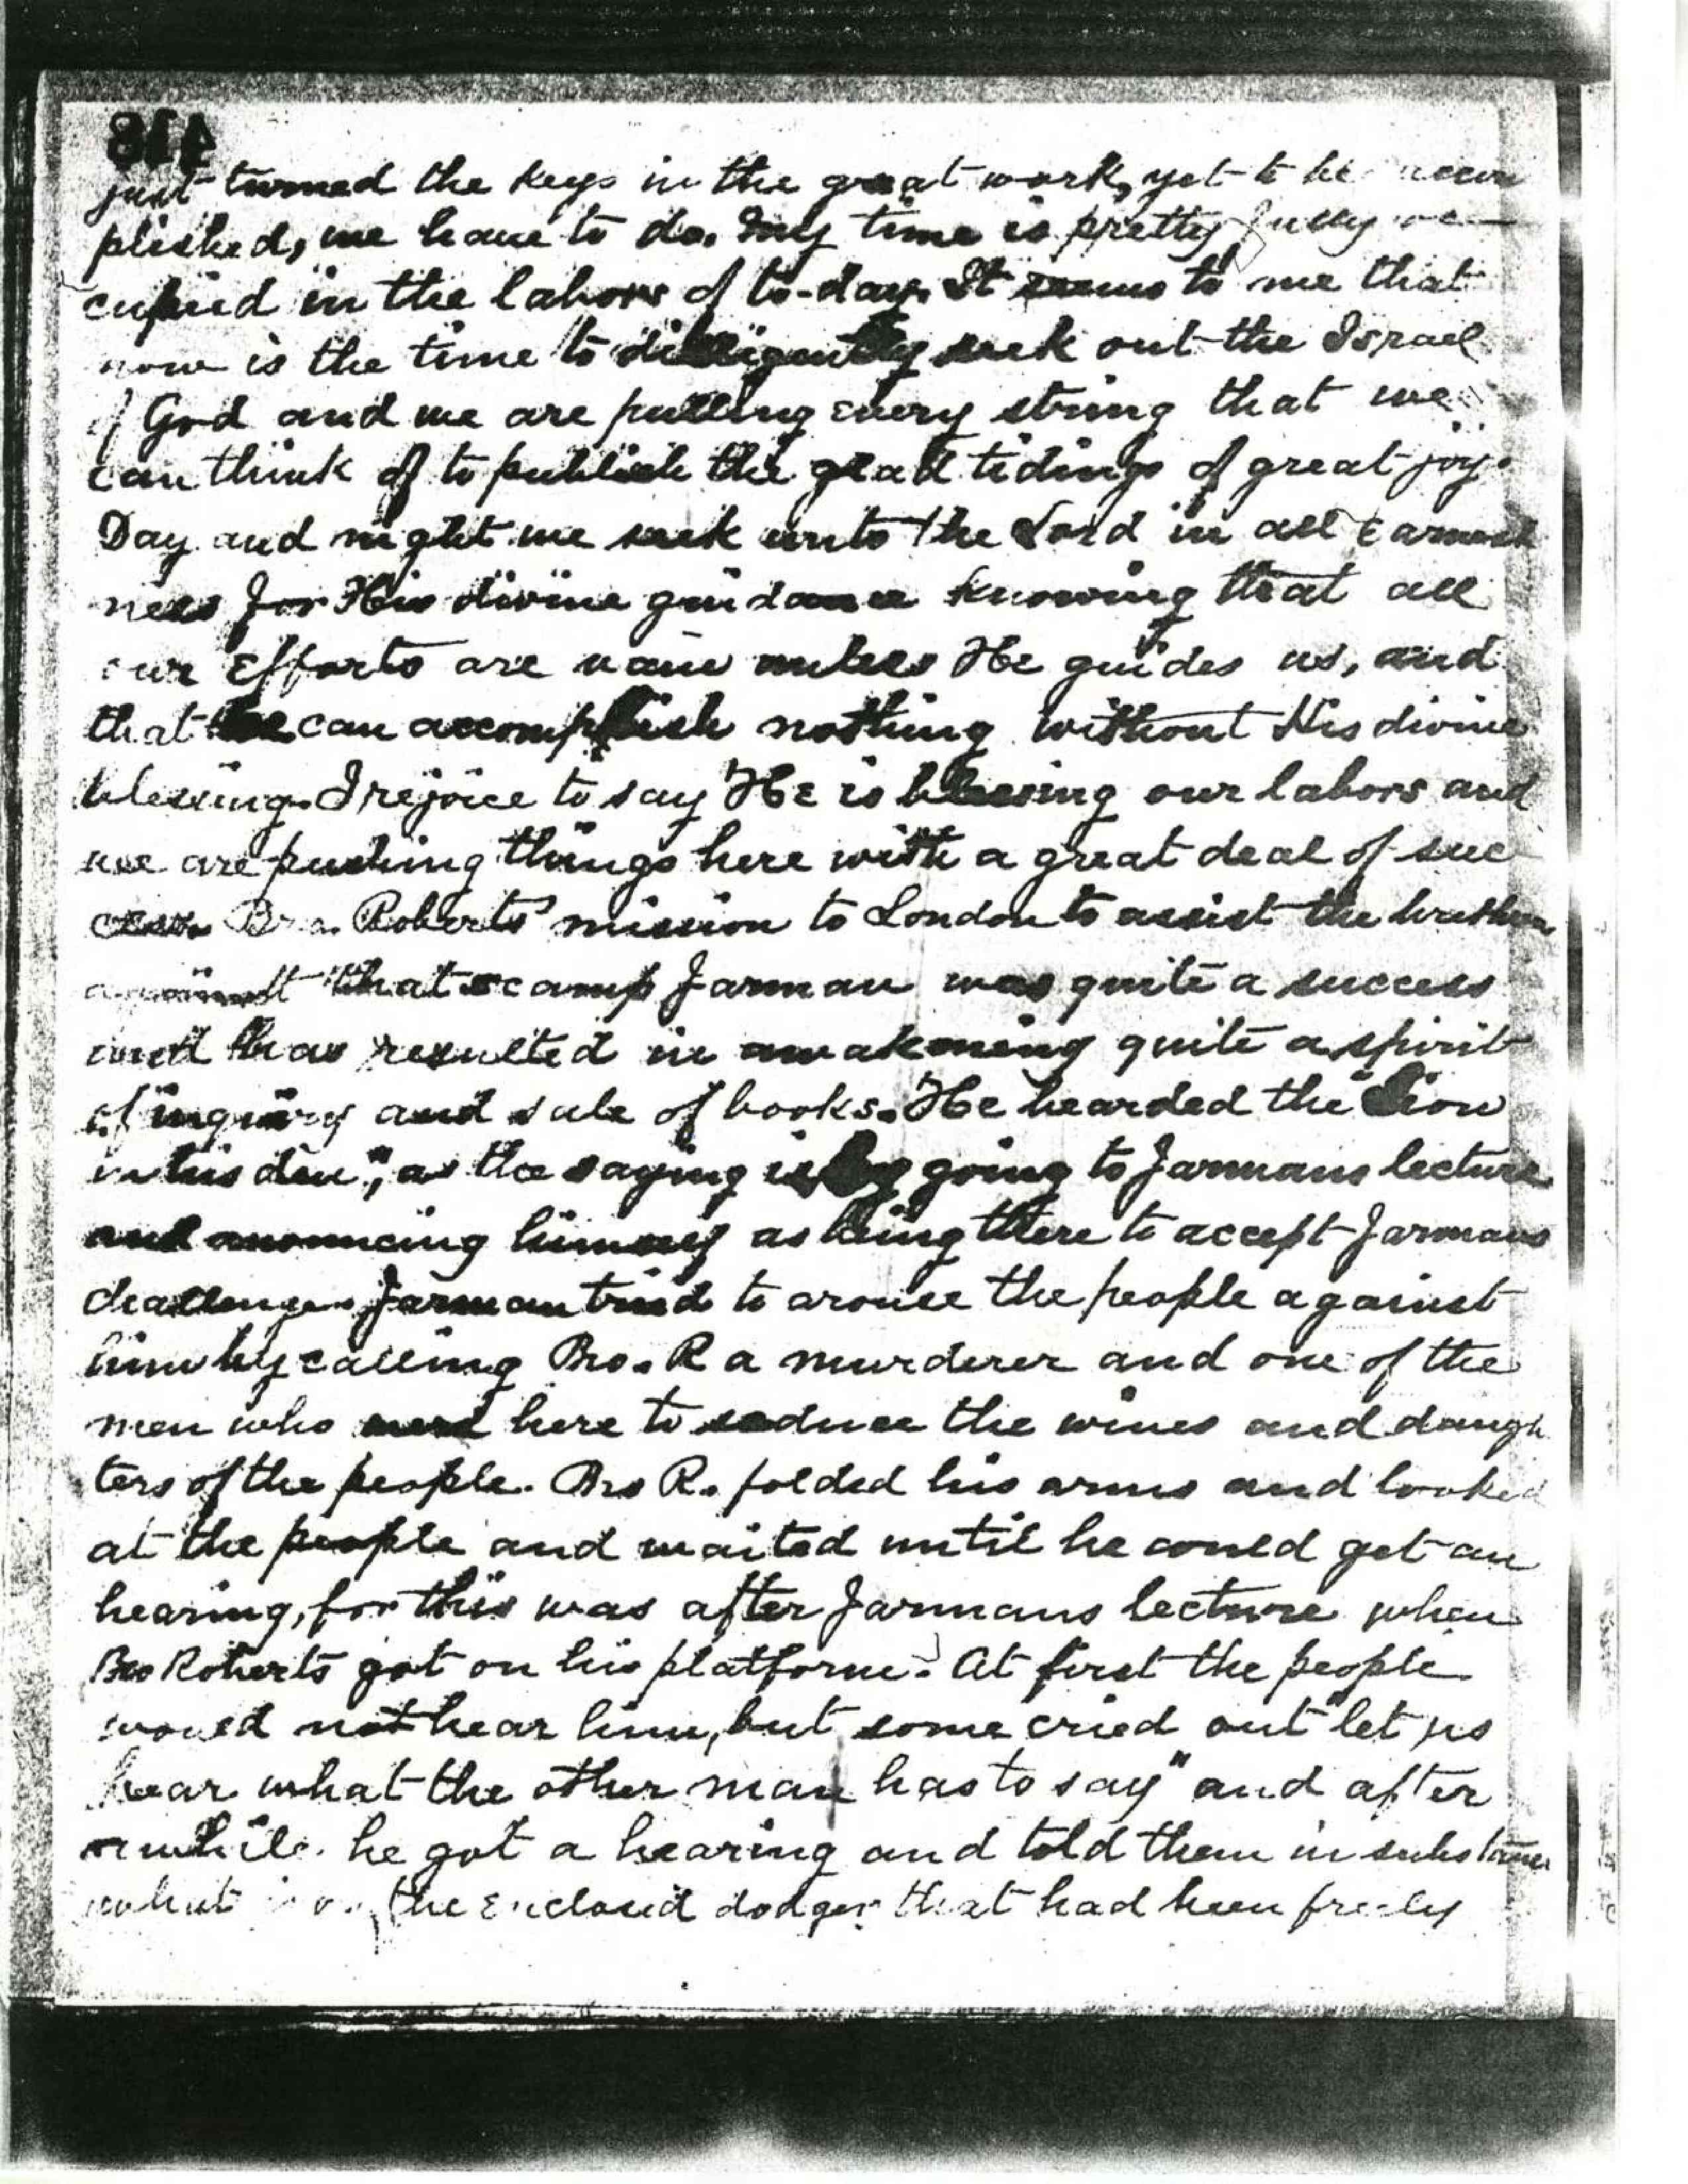 418
just turned the keys in the great work, yet to be accom
plished, we have to do. My time is pretty fully oc-
cupied in the labors of to-day. It seems to me that
now is the time to dilligently seek out the Israel
of God and we are pulling every string that we
can think of to publish the glad tidings of great joy.
Day and night we seek unto the Lord in all earnest
ness for His divine guidance knowing that all
our efforts are vain unless He guides us, and
that we can accomplish nothing without His divine
blessing. I rejoice to say He is blessing our labors and
we are pushing things here with a great deal of suc
cess. Bro. Roberts' mission to London to assist the brethren
against that scamp Jarman was quite a success
and has resulted in awakening quite a spirit
of inquiry and sale of books. He bearded the "Lion
in his den", as the saying is, by going to Jarmans lecture
and anouncing himself as being there to accept Jarmans
challenge. Jarman tried to arouse the people against
him by calling Bro. R a murderer and one of the
men who were here to seduce the wives and daugh
ters of the people. Bro R. folded his arms and looked
at the people and waited until he could get an
hearing, for this was after Jarmans lecture when
Bro Roberts got on his platform. At first the people
would not hear him, but some cried out "let us
hear what the other man has to say" and after
awhile he got a hearing and told them in substance
what the enclosed dodger that had been freely